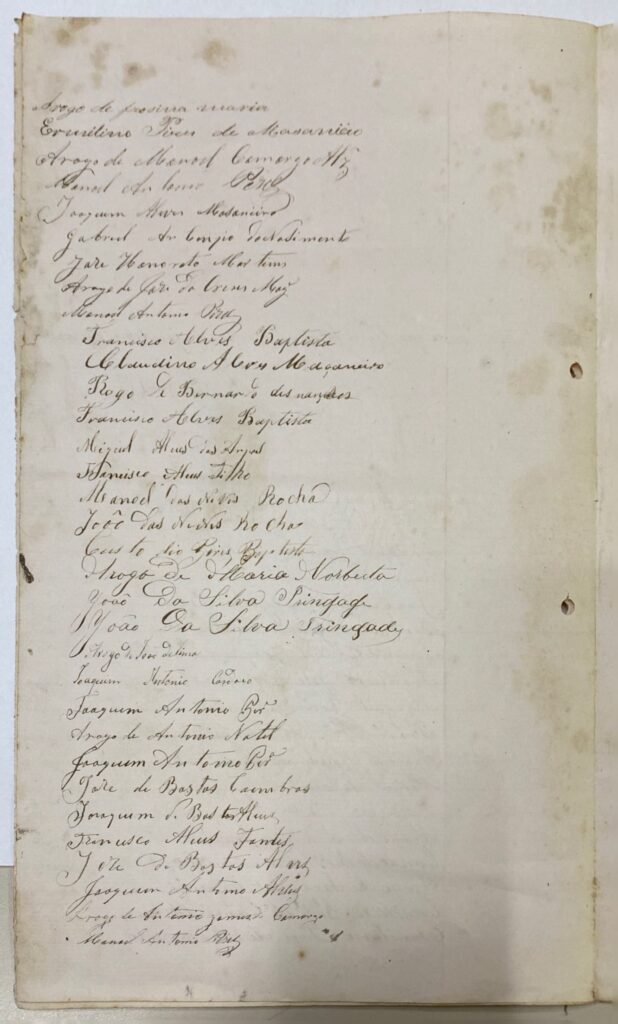 Arogo de maria
Ermilino Pires de Masaneiro
Arogo de Manoel Camargo
Manoel Antonio
Joaquim Alves Masaneiro
Gabriel do Nasimento
Joze Honorato Martins
Arogo de Joze da
Manoel Antonio
Francisco Alves Baptista
Claudino Alves Maçaneiro
Rogo de Bernardo
Francisco Alves Baptista
Miguel Alves dos
Francisco Alves Filho
Manoel das Neves Rocha
João das Neves Rocha
Custodio Pires Baptista
Arogo de Maria Norberta
João Da Silva Trindade
João Da Silva Trindade
Arogo de João de Lima
Joaquim Antonio Cardozo
Joaquim Antonio
Arogo de Antonio Natel
Joaquim Antonio
Joze de Bastos Coimbra
Joaquim de Bastos Alves
Francisco Alves Fontes
Joze de Bastos Alves
Joaquim Antonio Alves
Arogo de Antonio de Camargo
Manoel Antonio